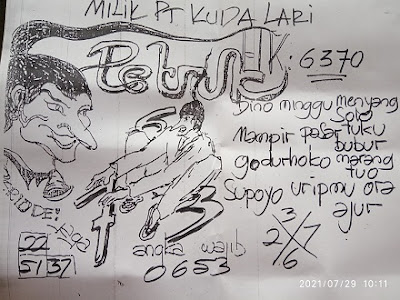 MILIK PT KUDA LARI
: 6370
Dino minggu menyang
Solo
Mampir pasar tuku
bubur
godurhoko marang
tuo
Supoyo uripmu ora
ajur
3
2 X 7
6
22
5137
angka wajib
0653
2021/07/29 10:11